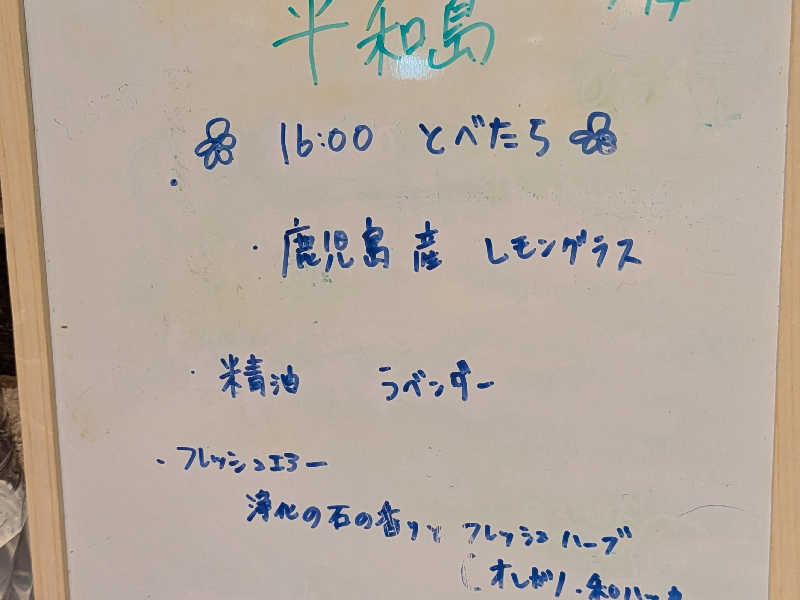 平和島
16:00 とべたら
・鹿児島産 レモングラス
・精油 ラベンダー
・フレッシュエアー
浄化の石の香りと フレッシュハーブ